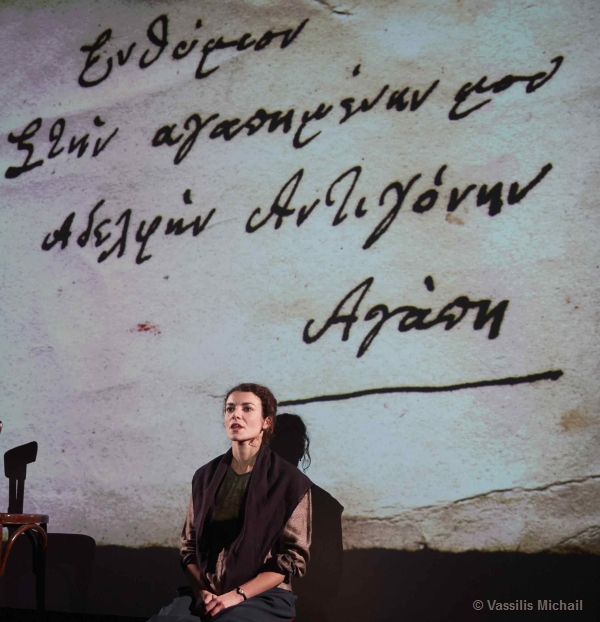 Ενθύμιον
Στήν αγαπημένην μου
Αδελφήν Αντιγόνην
Αγάπη
© Vassilis Michail